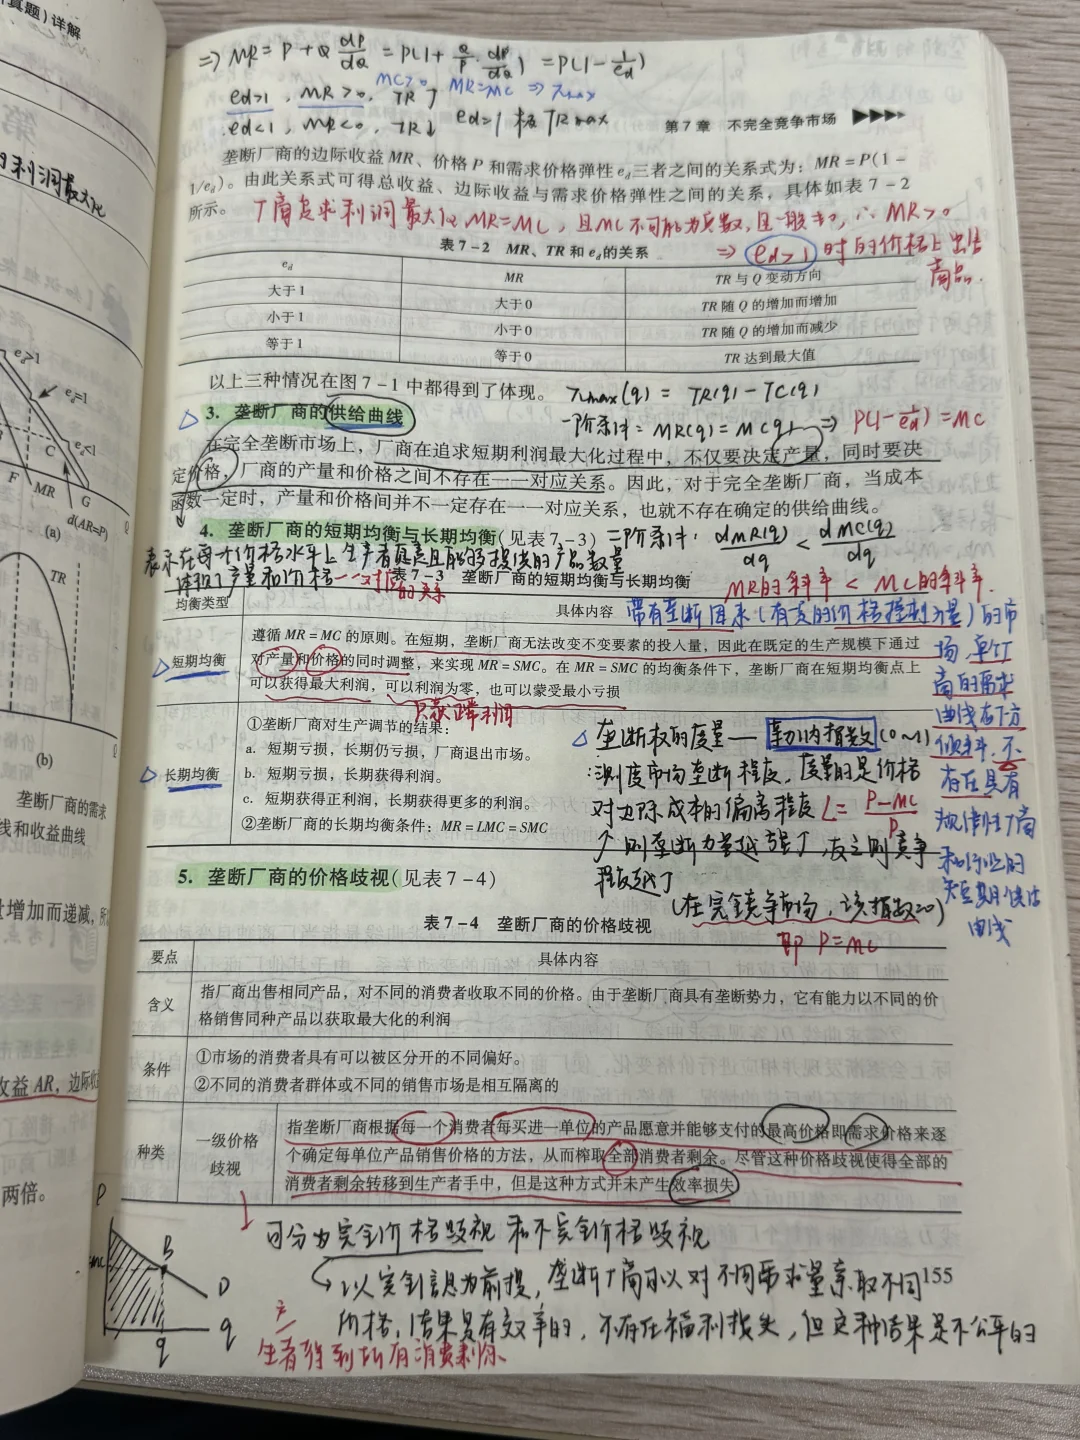 真题）详解
⇒ MR = P + Q dP/dQ = P(1 + Q/P · dP/dQ) = P(1 - 1/ed)
MC>0 MR=MC ⇒ πmax
ed>1，MR>0，TR↑
ed<1，MR<0，TR↓ ed=1 TRmax
第7章 不完全竞争市场
垄断厂商的边际收益MR、价格P和需求价格弹性ed三者之间的关系式为：MR=P(1-
1/ed)。由此关系式可得总收益、边际收益与需求价格弹性之间的关系，具体如表7-2
所示。
厂商追求利润最大化MR=MC，且MC不可能为负数，且一般≠0，∴MR>0
⇒ ed>1时的价格上出售
商品.
表7-2 MR、TR和ed的关系
ed MR TR与Q变动方向
大于1 大于0 TR随Q的增加而增加
小于1 小于0 TR随Q的增加而减少
等于1 等于0 TR达到最大值
以上三种情况在图7-1中都得到了体现。
πmax(q) = TR(q) - TC(q)
3. 垄断厂商的供给曲线
一阶条件：MR(q) = MC(q) ⇒ P(1 - 1/ed) = MC
在完全垄断市场上，厂商在追求短期利润最大化过程中，不仅要决定产量，同时要决
定价格，厂商的产量和价格之间不存在一一对应关系。因此，对于完全垄断厂商，当成本
函数一定时，产量和价格间并不一定存在一一对应关系，也就不存在确定的供给曲线。
4. 垄断厂商的短期均衡与长期均衡（见表7-3）
二阶条件：dMR(q)/dq < dMC(q)/dq
表示在每个价格水平上生产者愿意且能够提供的产品数量
体现了产量和价格一一对应的关系
MR的斜率 < MC的斜率.
表7-3 垄断厂商的短期均衡与长期均衡
均衡类型 具体内容
短期均衡
遵循MR=MC的原则。在短期，垄断厂商无法改变不变要素的投入量，因此在既定的生产规模下通过
对产量和价格的同时调整，来实现MR=SMC。在MR=SMC的均衡条件下，垄断厂商在短期均衡点上
可以获得最大利润，可以利润为零，也可以蒙受最小亏损
只获正常利润
长期均衡
①垄断厂商对生产调节的结果：
a. 短期亏损，长期仍亏损，厂商退出市场。
b. 短期亏损，长期获得利润。
c. 短期获得正利润，长期获得更多的利润。
②垄断厂商的长期均衡条件：MR=LMC=SMC
带有垄断因素（有支的价格控制力量）的市
场，单个厂
商的需求
曲线右下方
倾斜，不
存在具有
规律性厂商
和行业的
短期供给
曲线
垄断权的度量— 勒纳指数（0~1）
测度市场垄断程度，度量的是价格
对边际成本的偏离程度 L = P-MC/P
↑则垄断力量越强↑，反之则竞争
程度越↑
（在完全竞争市场，该指数=0）
即 P=MC
5. 垄断厂商的价格歧视（见表7-4）
表7-4 垄断厂商的价格歧视
要点 具体内容
含义
指厂商出售相同产品，对不同的消费者收取不同的价格。由于垄断厂商具有垄断势力，它有能力以不同的价
格销售同种产品以获取最大化的利润
条件
①市场的消费者具有可以被区分开的不同偏好。
②不同的消费者群体或不同的销售市场是相互隔离的
种类
一级价格
歧视
指垄断厂商根据每一个消费者每买进一单位的产品愿意并能够支付的最高价格即需求价格来逐
个确定每单位产品销售价格的方法，从而榨取全部消费者剩余。尽管这种价格歧视使得全部的
消费者剩余转移到生产者手中，但是这种方式并未产生效率损失
可分为完全价格歧视和不完全价格歧视
以完全信息为前提，垄断厂商可以对不同需求量索取不同
价格，结果是有效率的，不存在福利损失，但这种结果是不公平的
生产者得到所有消费者剩余
155
P
mc
B
D
q
q
第
的利润最大化
ed>1
ed=1
ed<1
C
F
MR
G
Q
d(AR=P)
(a)
TR
Q
(b)
垄断厂商的需求
线和收益曲线
量增加而递减，所
收益AR，边际收
两倍。